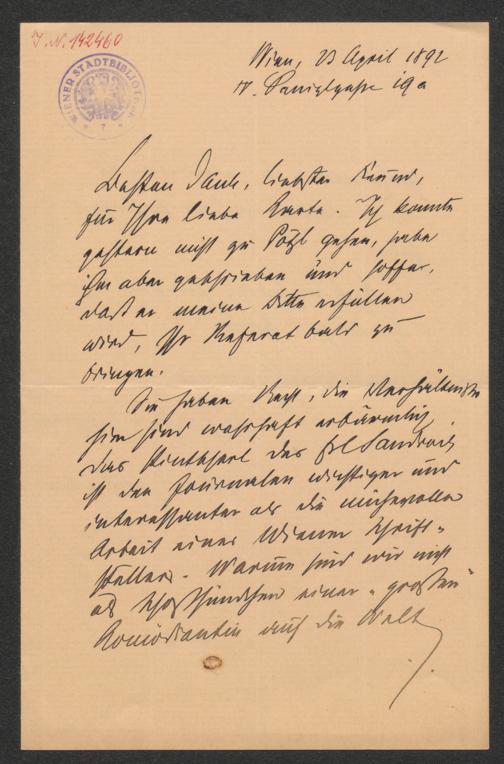 J. N. 142460
WIENER STADTBIBLIOTHEK
Wien, 23 April 1892
IV. 19a
Besten Dank, liebster Freund,
für Ihre liebe Karte. Ich konnte
gestern nicht zu Pötzl gehen, habe
ihm aber geschrieben und hoffe,
daß er meine Bitte erfüllen
wird, Ihr Referat bald zu
bringen.
Sie haben Recht, die Verhältnisse
hier sind wahrhaft erbärmlich.
Das des Frl Sandrock
ist den Journalen wichtiger und
interessanter als die mühevolle
Arbeit eines Wiener Schrift-
stellers. Warum sind wir nicht
als Schoßhündchen einer „großen"
Komödiantin auf die Welt